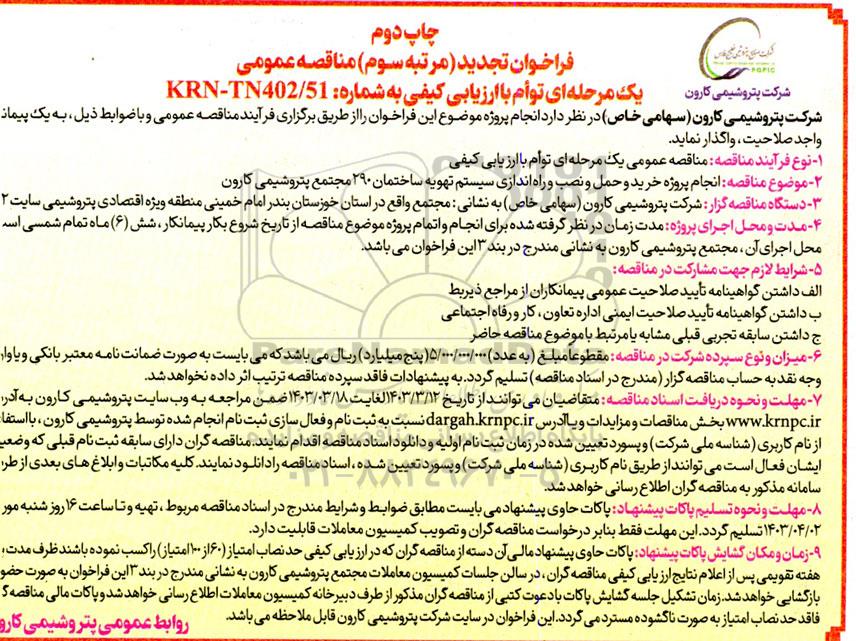 چاپ دوم
فراخوان تجدید (مرتبه سوم) مناقصه عمومی
یک مرحله‌ای توأم با ارزیابی کیفی به شماره: KRN-TN402/51
PGPIC
شرکت پتروشیمی کارون
شرکت پتروشیمی کارون (سهامی خاص) در نظر دارد انجام پروژه موضوع این فراخوان را از طریق برگزاری فرآیند مناقصه عمومی و با ضوابط ذیل، به یک پیمانـ
واجد صلاحیت، واگذار نماید.
۱-نوع فرآیند مناقصه: مناقصه عمومی یک مرحله‌ای توأم با ارزیابی کیفی
۲-موضوع مناقصه: انجام پروژه خرید و حمل و نصب و راه‌اندازی سیستم تهویه ساختمان ۲۹۰ مجتمع پتروشیمی کارون
۳-دستگاه مناقصه گزار: شرکت پتروشیمی کارون (سهامی خاص) به نشانی: مجتمع واقع در استان خوزستان بندر امام خمینی منطقه ویژه اقتصادی پتروشیمی سایت ۲
۴-مدت و محل اجرای پروژه: مدت زمان در نظر گرفته شده برای انجام و اتمام پروژه موضوع مناقصه از تاریخ شروع بکار پیمانکار، شش (۶) ماه تمام شمسی است
محل اجرای آن، مجتمع پتروشیمی کارون به نشانی مندرج در بند ۳ این فراخوان می باشد.
۵-شرایط لازم جهت مشارکت در مناقصه:
الف داشتن گواهینامه تأیید صلاحیت عمومی پیمانکاران از مراجع ذیربط
ب داشتن گواهینامه تأیید صلاحیت ایمنی اداره تعاون، کار و رفاه اجتماعی
ج داشتن سابقه تجربی قبلی مشابه یا مرتبط با موضوع مناقصه حاضر
۶-میزان و نوع سپرده شرکت در مناقصه: مقطوعاً مبلغ (به عدد) ۱۵/۰۰۰/۰۰۰/۰۰۰ (پنج میلیارد) ریال می باشد که می بایست به صورت ضمانت نامه معتبر بانکی و یا وار
وجه نقد به حساب مناقصه گزار (مندرج در اسناد مناقصه) تسلیم گردد. به پیشنهادات فاقد سپرده مناقصه ترتیب اثر داده نخواهد شد.
۷-مهلت و نحوه دریافت اسناد مناقصه: متقاضیان می توانند از تاریخ ۱۴۰۳/۳/۱۲ لغایت ۱۴۰۳/۰۳/۱۸ ضمن مراجعه به وب سایت پتروشیمی کارون به آدر
www.krnpc.ir بخش مناقصات و مزایدات و یا آدرس dargah.krnpc.ir نسبت به ثبت نام و فعال سازی ثبت نام انجام شده توسط پتروشیمی کارون، با استفاد
از نام کاربری (شناسه ملی شرکت) و پسورد تعیین شده در زمان ثبت نام اولیه و دانلود اسناد مناقصه اقدام نمایند. مناقصه گران دارای سابقه ثبت نام قبلی که وضعی
ایشان فعال است می توانند از طریق نام کاربری (شناسه ملی شرکت) و پسورد تعیین شده، اسناد مناقصه را دانلود نمایند. کلیه مکاتبات و ابلاغ های بعدی از طر
سامانه مذکور به مناقصه گران اطلاع رسانی خواهد شد.
۸-مهلت و نحوه تسلیم پاکات پیشنهاد: پاکات حاوی پیشنهاد می بایست مطابق ضوابط و شرایط مندرج در اسناد مناقصه مربوط، تهیه و تا ساعت ۱۶ روز شنبه مور
۱۴۰۳/۰۴/۰۲ تسلیم گردد. این مهلت فقط بنابر درخواست مناقصه گران و تصویب کمیسیون معاملات قابلیت دارد.
۹-زمان و مکان گشایش پاکات پیشنهاد: پاکات حاوی پیشنهاد مالی آن دسته از مناقصه گران که در ارزیابی کیفی حد نصاب امتیاز (۶۰ از ۱۰۰ امتیاز) را کسب نموده باشند ظرف مدت
هفته تقویمی پس از اعلام نتایج ارزیابی کیفی مناقصه گران، در سالن جلسات کمیسیون معاملات مجتمع پتروشیمی کارون به نشانی مندرج در بند ۳ این فراخوان به صورت حضو
بازگشایی خواهد شد. زمان تشکیل جلسه گشایش پاکات با دعوت کتبی از مناقصه گران مذکور از طرف دبیرخانه کمیسیون معاملات اطلاع رسانی خواهد شد و پاکات مالی مناقصه گ
فاقد حد نصاب امتیاز به صورت ناگشوده مسترد می گردد. این فراخوان در سایت شرکت پتروشیمی کارون قابل ملاحظه می باشد.
روابط عمومی پتروشیمی کارو